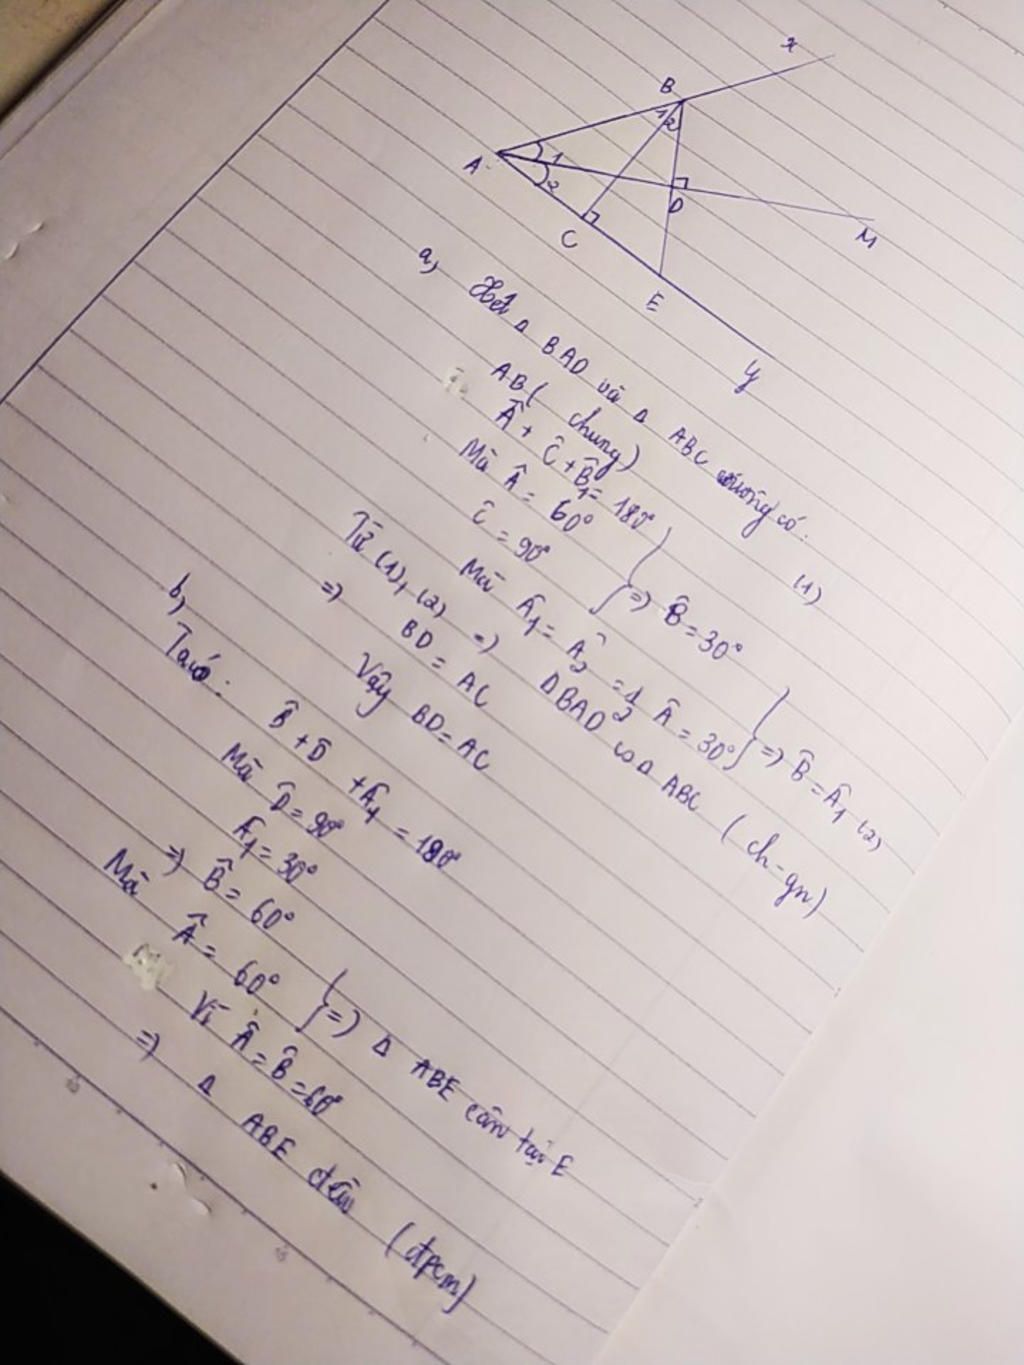 x
B
1 2
A
1
2
D
M
C
E
y
a, Xét Δ BAD và Δ ABC vuông có:
AB ( chung) (1)
Â + Ĉ + B̂₁ = 180°
Mà Â = 60°
Ĉ = 90°
} => B̂ = 30°
Mà Â₁ = Â₂ = 1/2 Â = 30° } => B̂ = Â₁ (2)
Từ (1), (2) => Δ BAD = Δ ABC ( ch - gn)
=> BD = AC
Vậy BD = AC
b, Ta có:
B̂ + D̂ + Â₁ = 180°
Mà D̂ = 90°
Â₁ = 30°
=> B̂ = 60°
Mà Â = 60° } => Δ ABE cân tại E
Vì Â = B̂ = 60°
=> Δ ABE đều (đpcm)